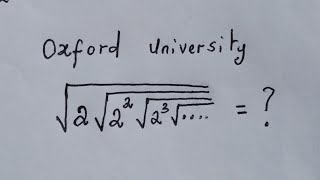 Oxford university
√2√2²√2³√.... = ?